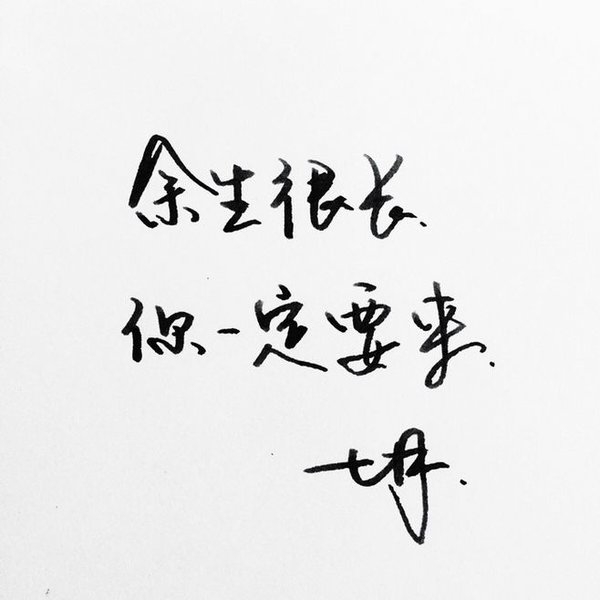 余生很长.
你一定要来.
七月.